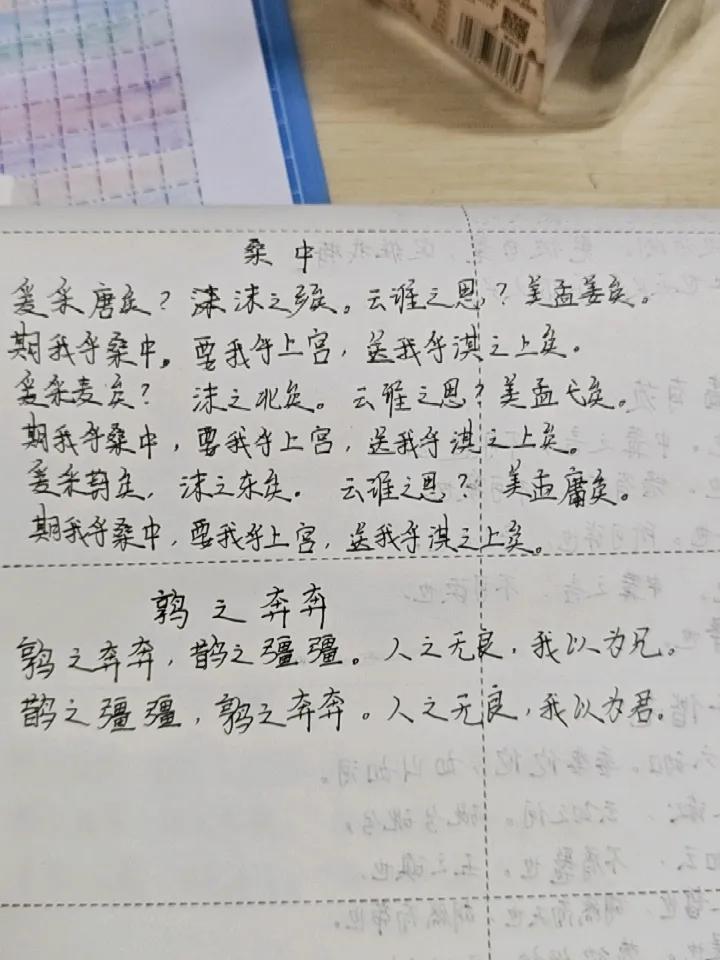 桑中
爰采唐矣？沫沫之乡矣。云谁之思？美孟姜矣。
期我乎桑中。要我乎上宫，送我乎淇之上矣。
爰采麦矣？沫之北矣。云谁之思？美孟弋矣。
期我乎桑中，要我乎上宫，送我乎淇之上矣。
爰采葑矣，沫之东矣。云谁之思？美孟庸矣。
期我乎桑中，要我乎上宫，送我乎淇之上矣。
鹑之奔奔
鹑之奔奔，鹊之彊彊。人之无良，我以为兄。
鹊之彊彊，鹑之奔奔。人之无良，我以为君。